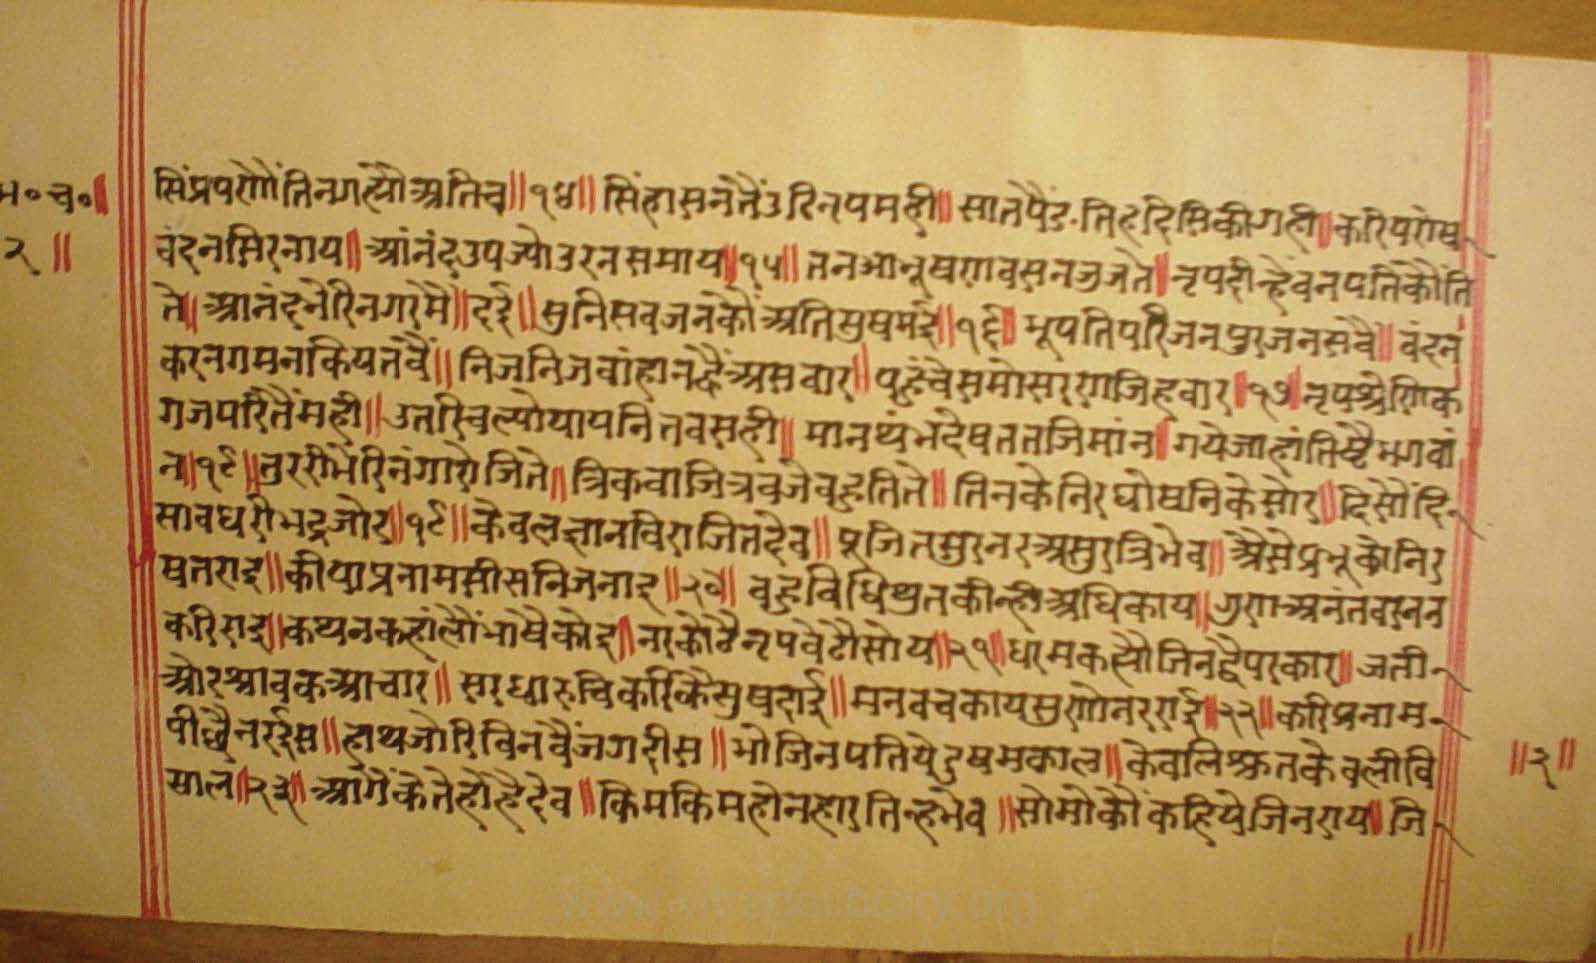 भ॰च॰॥
२॥
सिंप्रषरोगेंतिनगह्यौअतिच॥१४॥सिंहासनतेंउठिनृपमही॥सातपैंड.तिहदिसिकीगही॥करिपरोष
वंदनसिरनाय॥आंनंदउपज्योउरनसमाय॥१५॥तनआभूषणवसनजुजते॥नृपदीन्हेंवनपतिकौति
ते॥आनंदभेरिनगरमैं॥दई॥सुनिसवजनकौंअतिसुषभई॥१६॥भूपतिपरिजनपुरजनसवै॥वंदन
करनगमनकियतवैं॥निजनिजवांहानह्वैंअसवार॥पहुंचेसमोसररणजिहवार॥१७॥नृपश्रेणिक
गजपरितैंमही॥उतरिचल्योपायनितवसही॥मानथंभदेषततजिमांन॥गयेजाहांतिष्टैभगवां
न॥१८॥तुररीभेरिनंगारोजिते॥त्रिकवाजित्रवजेवुहतिते॥तिनकेनिरघोषनिकेसोर॥दिसौंदि
सावधरीभद्रजोर॥१९॥केवलज्ञानविराजितदेव॥पूजितसुरनरअसुरत्रिभेव॥अैसेप्रभूकोनिर
षतराइ॥कीयोप्रनामसीसनिजनाइ॥२०॥वुहविधिश्रुतकीन्हीअधिकाय॥गुणअनंतवरनन
करिराइ॥कथनकहांलौंभाषेकोइ॥नरकोठैनृपवेठौसोय॥२१॥धरमकह्यौजिनद्वैपरकार॥जती
औरश्रावकआचार॥सरधारुचिकरिकैसुषदाई॥मनवचकायसुणोनरराई॥२२॥करिप्रनाम
पीछैनरईस॥हाथजोरिविनवैंजगदीस॥भोजिनपतियेदुषमकाल॥केवलिश्रुतकेवलीवि
साल॥२३॥आगेंकेतेहोंहैदेव॥किमकिमहोनहारतिन्हभेव॥सोमोकौंकहियेजिनराय॥जि
॥२॥
www.jainelibrary.org